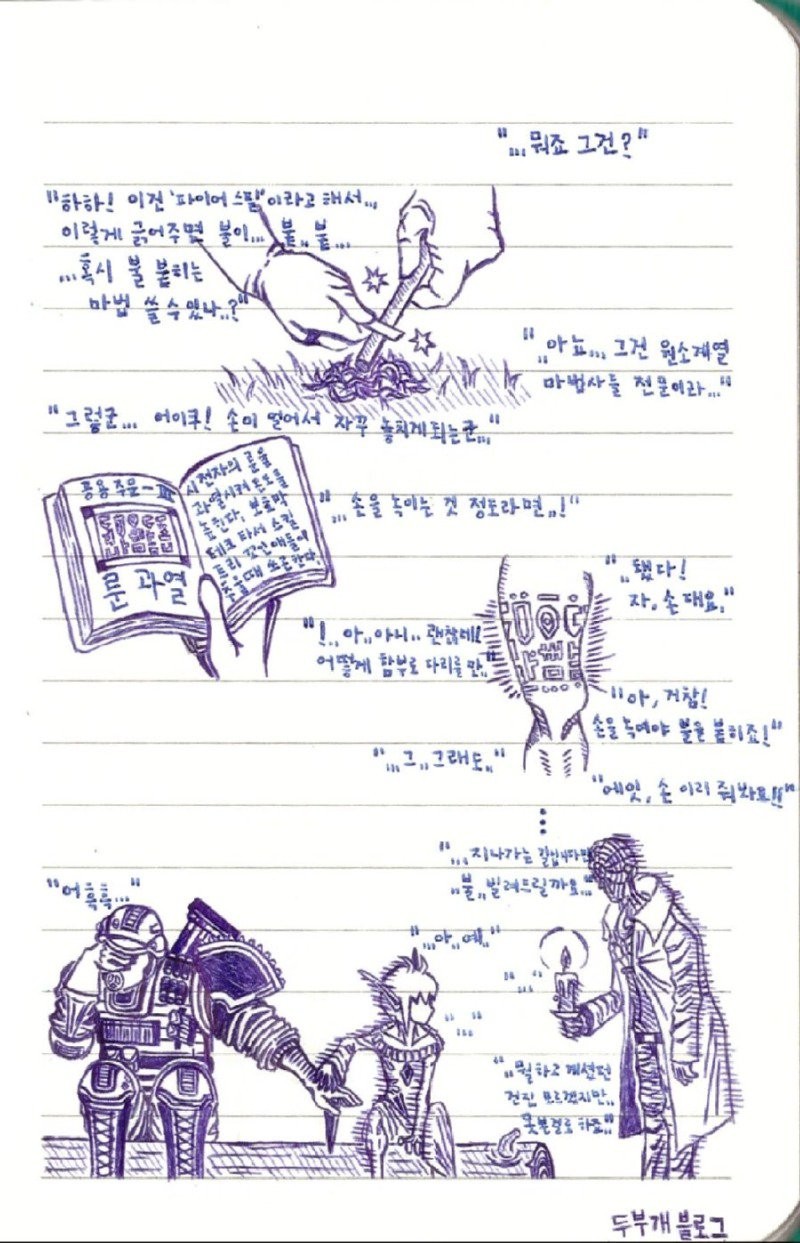 "...뭐죠 그건?"
"하하! 이건 '파이어 스틸'이라고 해서...
이렇게 긁어주면 불이... 불.. 불...
...혹시 불 붙히는
마법 쓸 수 있나..?"
"..아뇨... 그건 원소계열
마법사들 전문이라..."
"그렇군... 어이쿠! 손이 얼어서 자꾸 놓치게 되는군..."
공용주문-III
룬 과열
시전자의 룬을
과열시켜 온도를
높힌다. 보호막
테크 타서 스킬
트리 꼬인 애들이
추울때 쓰곤한다
"...손을 녹이는 것 정도라면..!"
"..됐다!
자, 손 대요."
"!.. 아.. 아니.. 괜찮네!!
어떻게 함부로 다리를 만.."
"아, 거참!
손을 녹여야 불을 붙히죠!"
"...그.. 그래도.."
"에잇, 손 이리 줘봐요!!"
"...지나가는 길입니다만
..불.. 빌려드릴까요..."
"어흑흑..."
"...아.. 예.."
"..."
"..."
"..뭘 하고 계셨던
건진 모르겠지만..
못본걸로 하죠.."
두부개 블로그